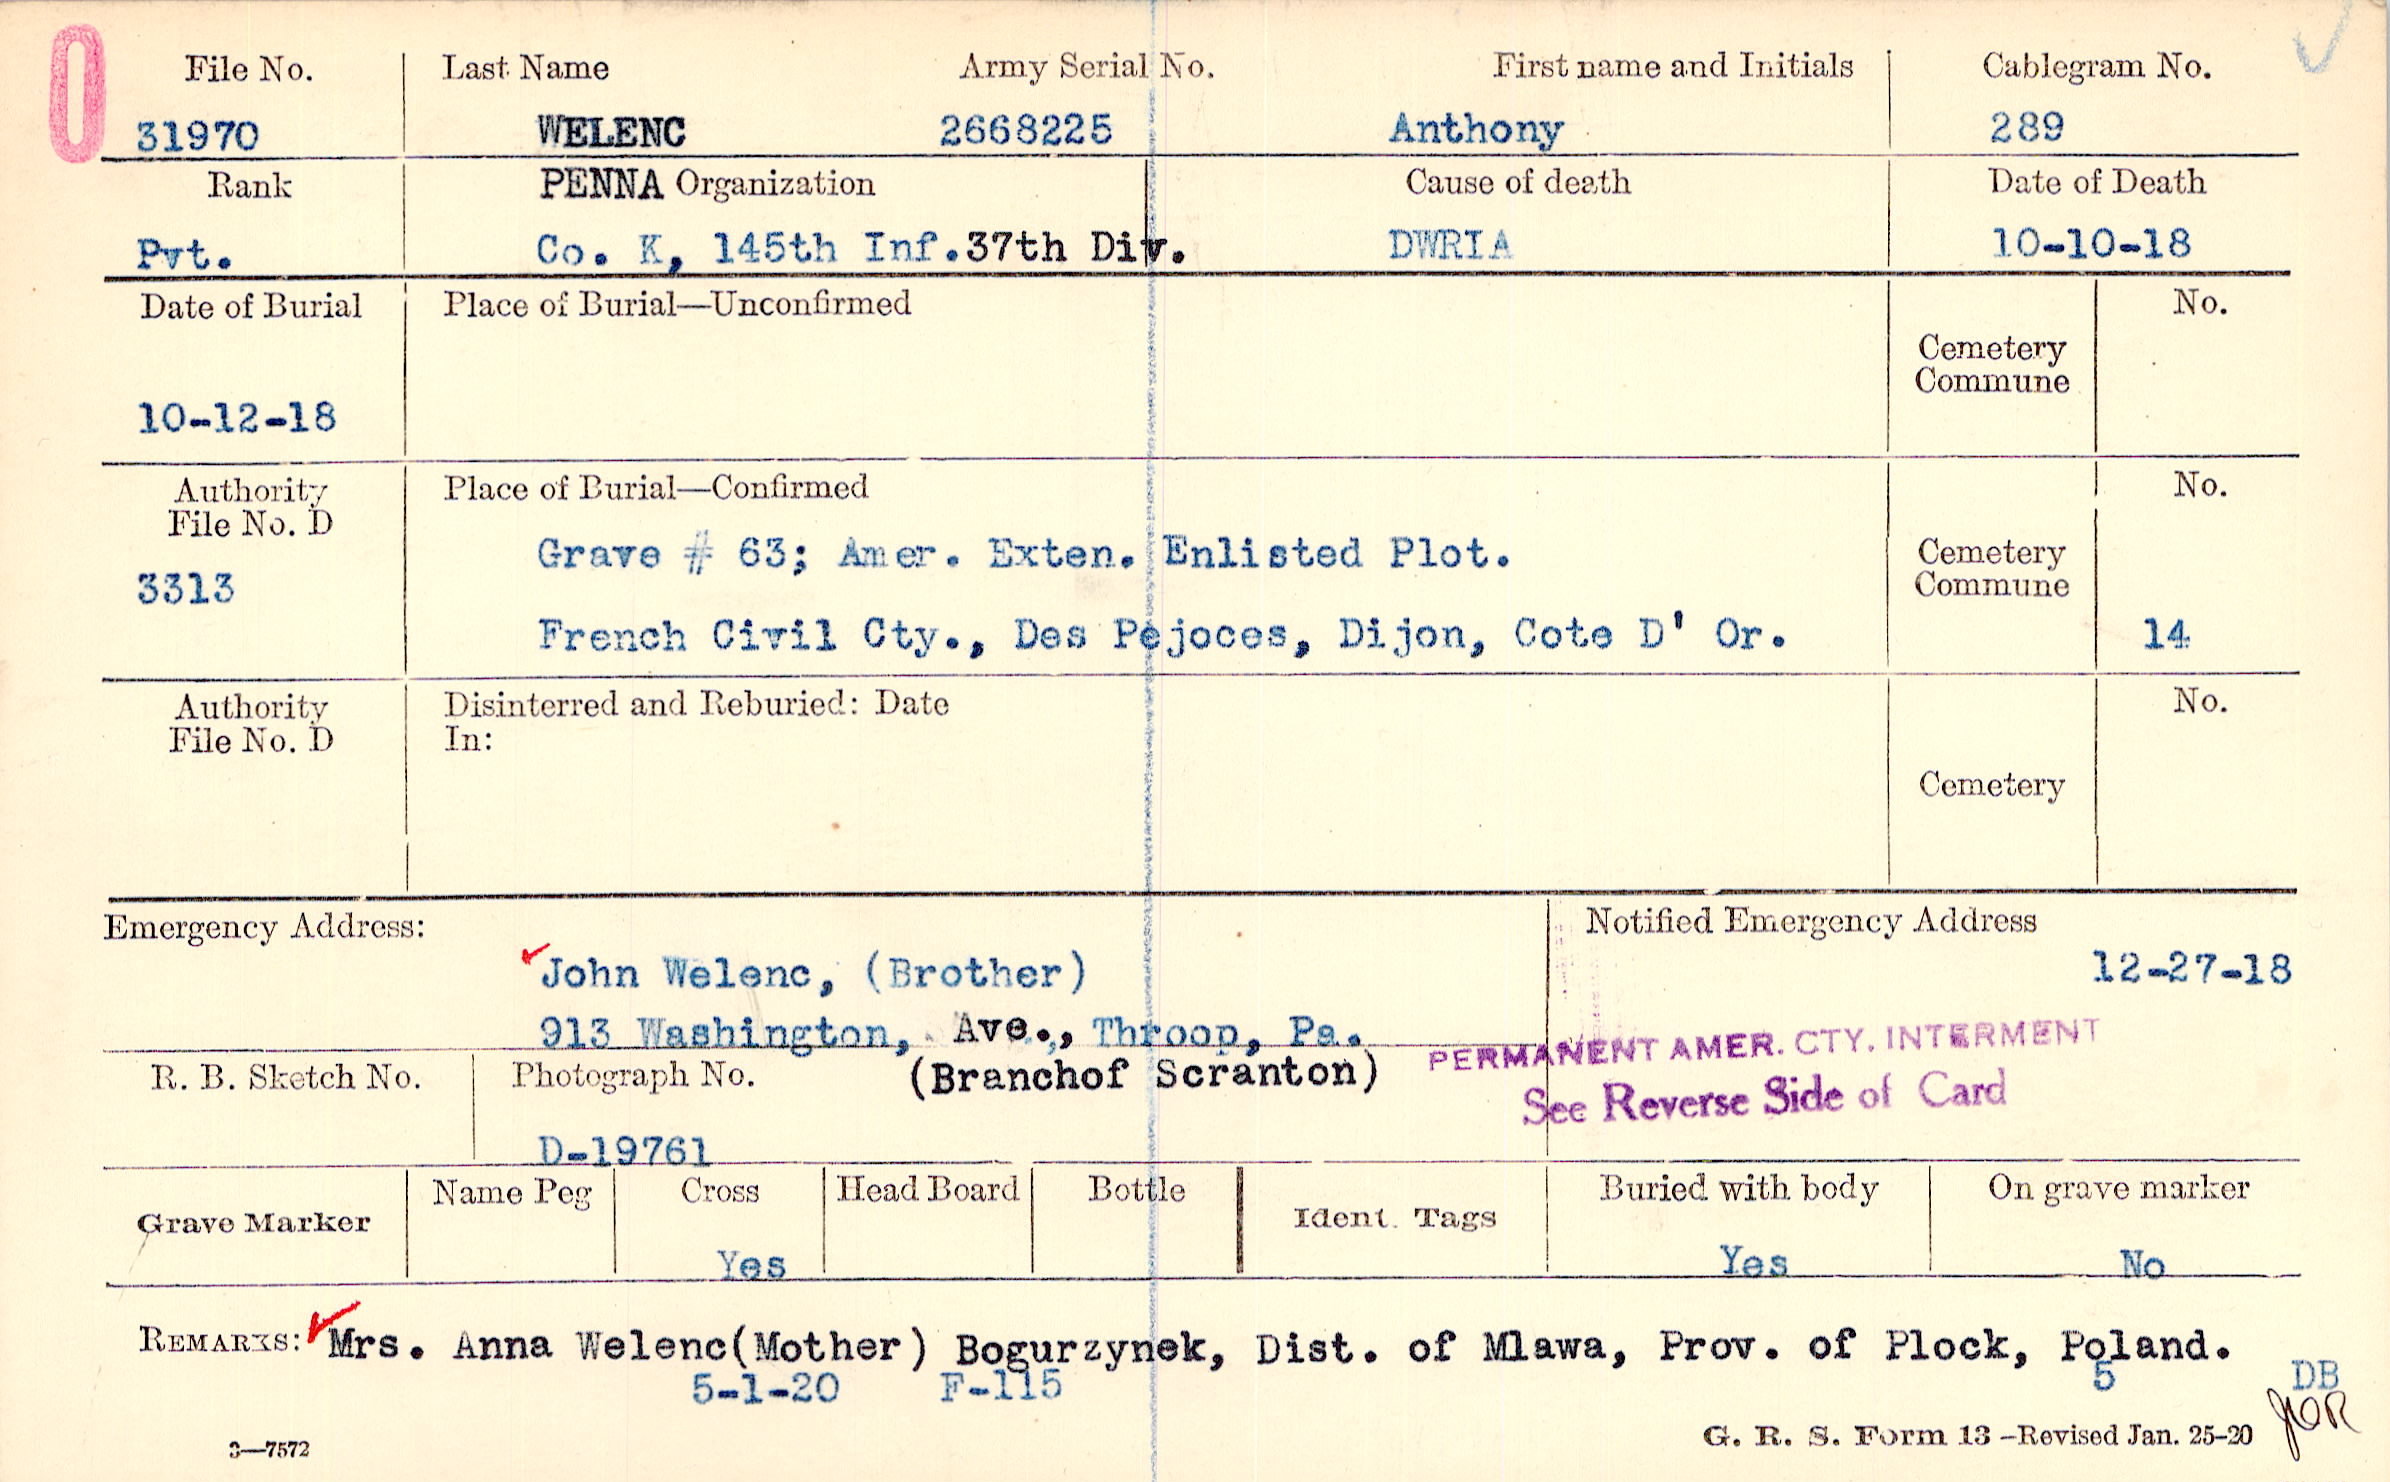 0
File No. Last Name Army Serial No. First name and Initials Cablegram No.
31970 WELENC 2668225 Anthony 289
Rank PENNA Organization Cause of death Date of Death
Pvt. Co. K, 145th Inf.37th Div. DWRIA 10-10-18
Date of Burial Place of Burial—Unconfirmed No.
Cemetery
Commune
10-12-18
Authority Place of Burial—Confirmed No.
File No. D
Grave # 63; Amer. Exten. Enlisted Plot. Cemetery
3313 Commune
French Civil Cty., Des Pejoces, Dijon, Cote D' Or. 14
Authority Disinterred and Reburied: Date No.
File No. D In:
Cemetery
Emergency Address: Notified Emergency Address
John Welenc, (Brother) 12-27-18
913 Washington, Ave., Throop, Pa.
PERMANENT AMER. CTY. INTERMENT
R. B. Sketch No. Photograph No. (Branchof Scranton)
See Reverse Side of Card
D-19761
Name Peg Cross Head Board Bottle Buried with body On grave marker
Grave Marker Ident. Tags
Yes Yes No
REMARKS: Mrs. Anna Welenc(Mother) Bogurzynek, Dist. of Mlawa, Prov. of Plock, Poland.
5-1-20 F-115 5 DB
G. R. S. Form 13—Revised Jan. 25-20
3—7572